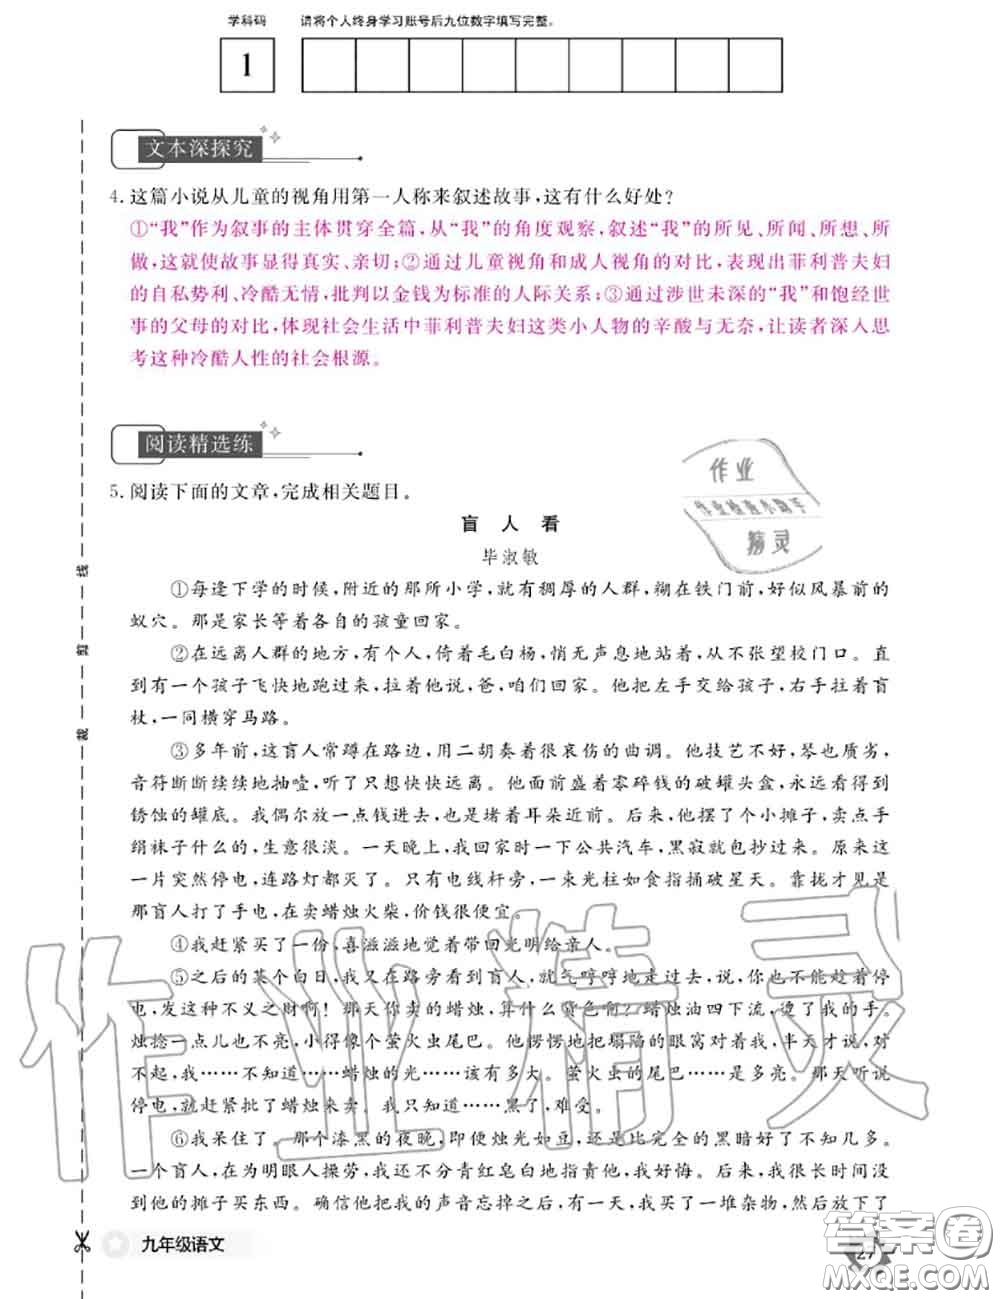 学科码 请将个人终身学习账号后九位数字填写完整。
1
文本深探究
4. 这篇小说从儿童的视角用第一人称来叙述故事，这有什么好处？
①“我”作为叙事的主体贯穿全篇，从“我”的角度观察，叙述“我”的所见、所闻、所想、所
做，这就使故事显得真实、亲切；②通过儿童视角和成人视角的对比，表现出菲利普夫妇
的自私势利、冷酷无情，批判以金钱为标准的人际关系；③通过涉世未深的“我”和饱经世
事的父母的对比，体现社会生活中菲利普夫妇这类小人物的辛酸与无奈，让读者深入思
考这种冷酷人性的社会根源。
阅读精选练
5. 阅读下面的文章，完成相关题目。
盲 人 看
毕淑敏
①每逢下学的时候，附近的那所小学，就有稠厚的人群，糊在铁门前，好似风暴前的
蚁穴。那是家长等着各自的孩童回家。
②在远离人群的地方，有个人，倚着毛白杨，悄无声息地站着，从不张望校门口。直
到有一个孩子飞快地跑过来，拉着他说，爸，咱们回家。他把左手交给孩子，右手拄着盲
杖，一同横穿马路。
③多年前，这盲人常蹲在路边，用二胡奏着很哀伤的曲调。他技艺不好，琴也质劣，
音符断断续续地抽噎，听了只想快快远离。他面前盛着零碎钱的破罐头盒，永远看得到
锈蚀的罐底。我偶尔放一点钱进去，也是堵着耳朵近前。后来，他摆了个小摊子，卖点手
绢袜子什么的，生意很淡。一天晚上，我回家时一下公共汽车，黑寂就包抄过来。原来这
一片突然停电，连路灯都灭了。只有电线杆旁，一束光柱如食指捅破星天。靠拢才见是
那盲人打了手电，在卖蜡烛火柴，价钱很便宜。
④我赶紧买了一份，喜滋滋地觉着带回光明给亲人。
⑤之后的某个白日，我又在路旁看到盲人，就气哼哼地走过去，说，你也不能趁着停
电，发这种不义之财啊！那天你卖的蜡烛，算什么货色啊？蜡烛油四下流，烫了我的手。
烛捻一点儿也不亮，小得像个萤火虫尾巴。他愣愣地把塌陷的眼窝对着我，半天才说，对
不起，我……不知道……蜡烛的光……该有多大。萤火虫的尾巴……是多亮。那天听说
停电，就赶紧批了蜡烛来卖。我只知道……黑了，难受。
⑥我呆住了。那个漆黑的夜晚，即便烛光如豆，还是比完全的黑暗好了不知几多。
一个盲人，在为明眼人操劳，我还不分青红皂白地指责他，我好悔。后来，我很长时间没
到他的摊子买东西。确信他把我的声音忘掉之后，有一天，我买了一堆杂物，然后放下了
裁 剪 线
九年级语文
27
作业
作业检查小助手
精灵
作业精灵
答案圈
MXQE.COM